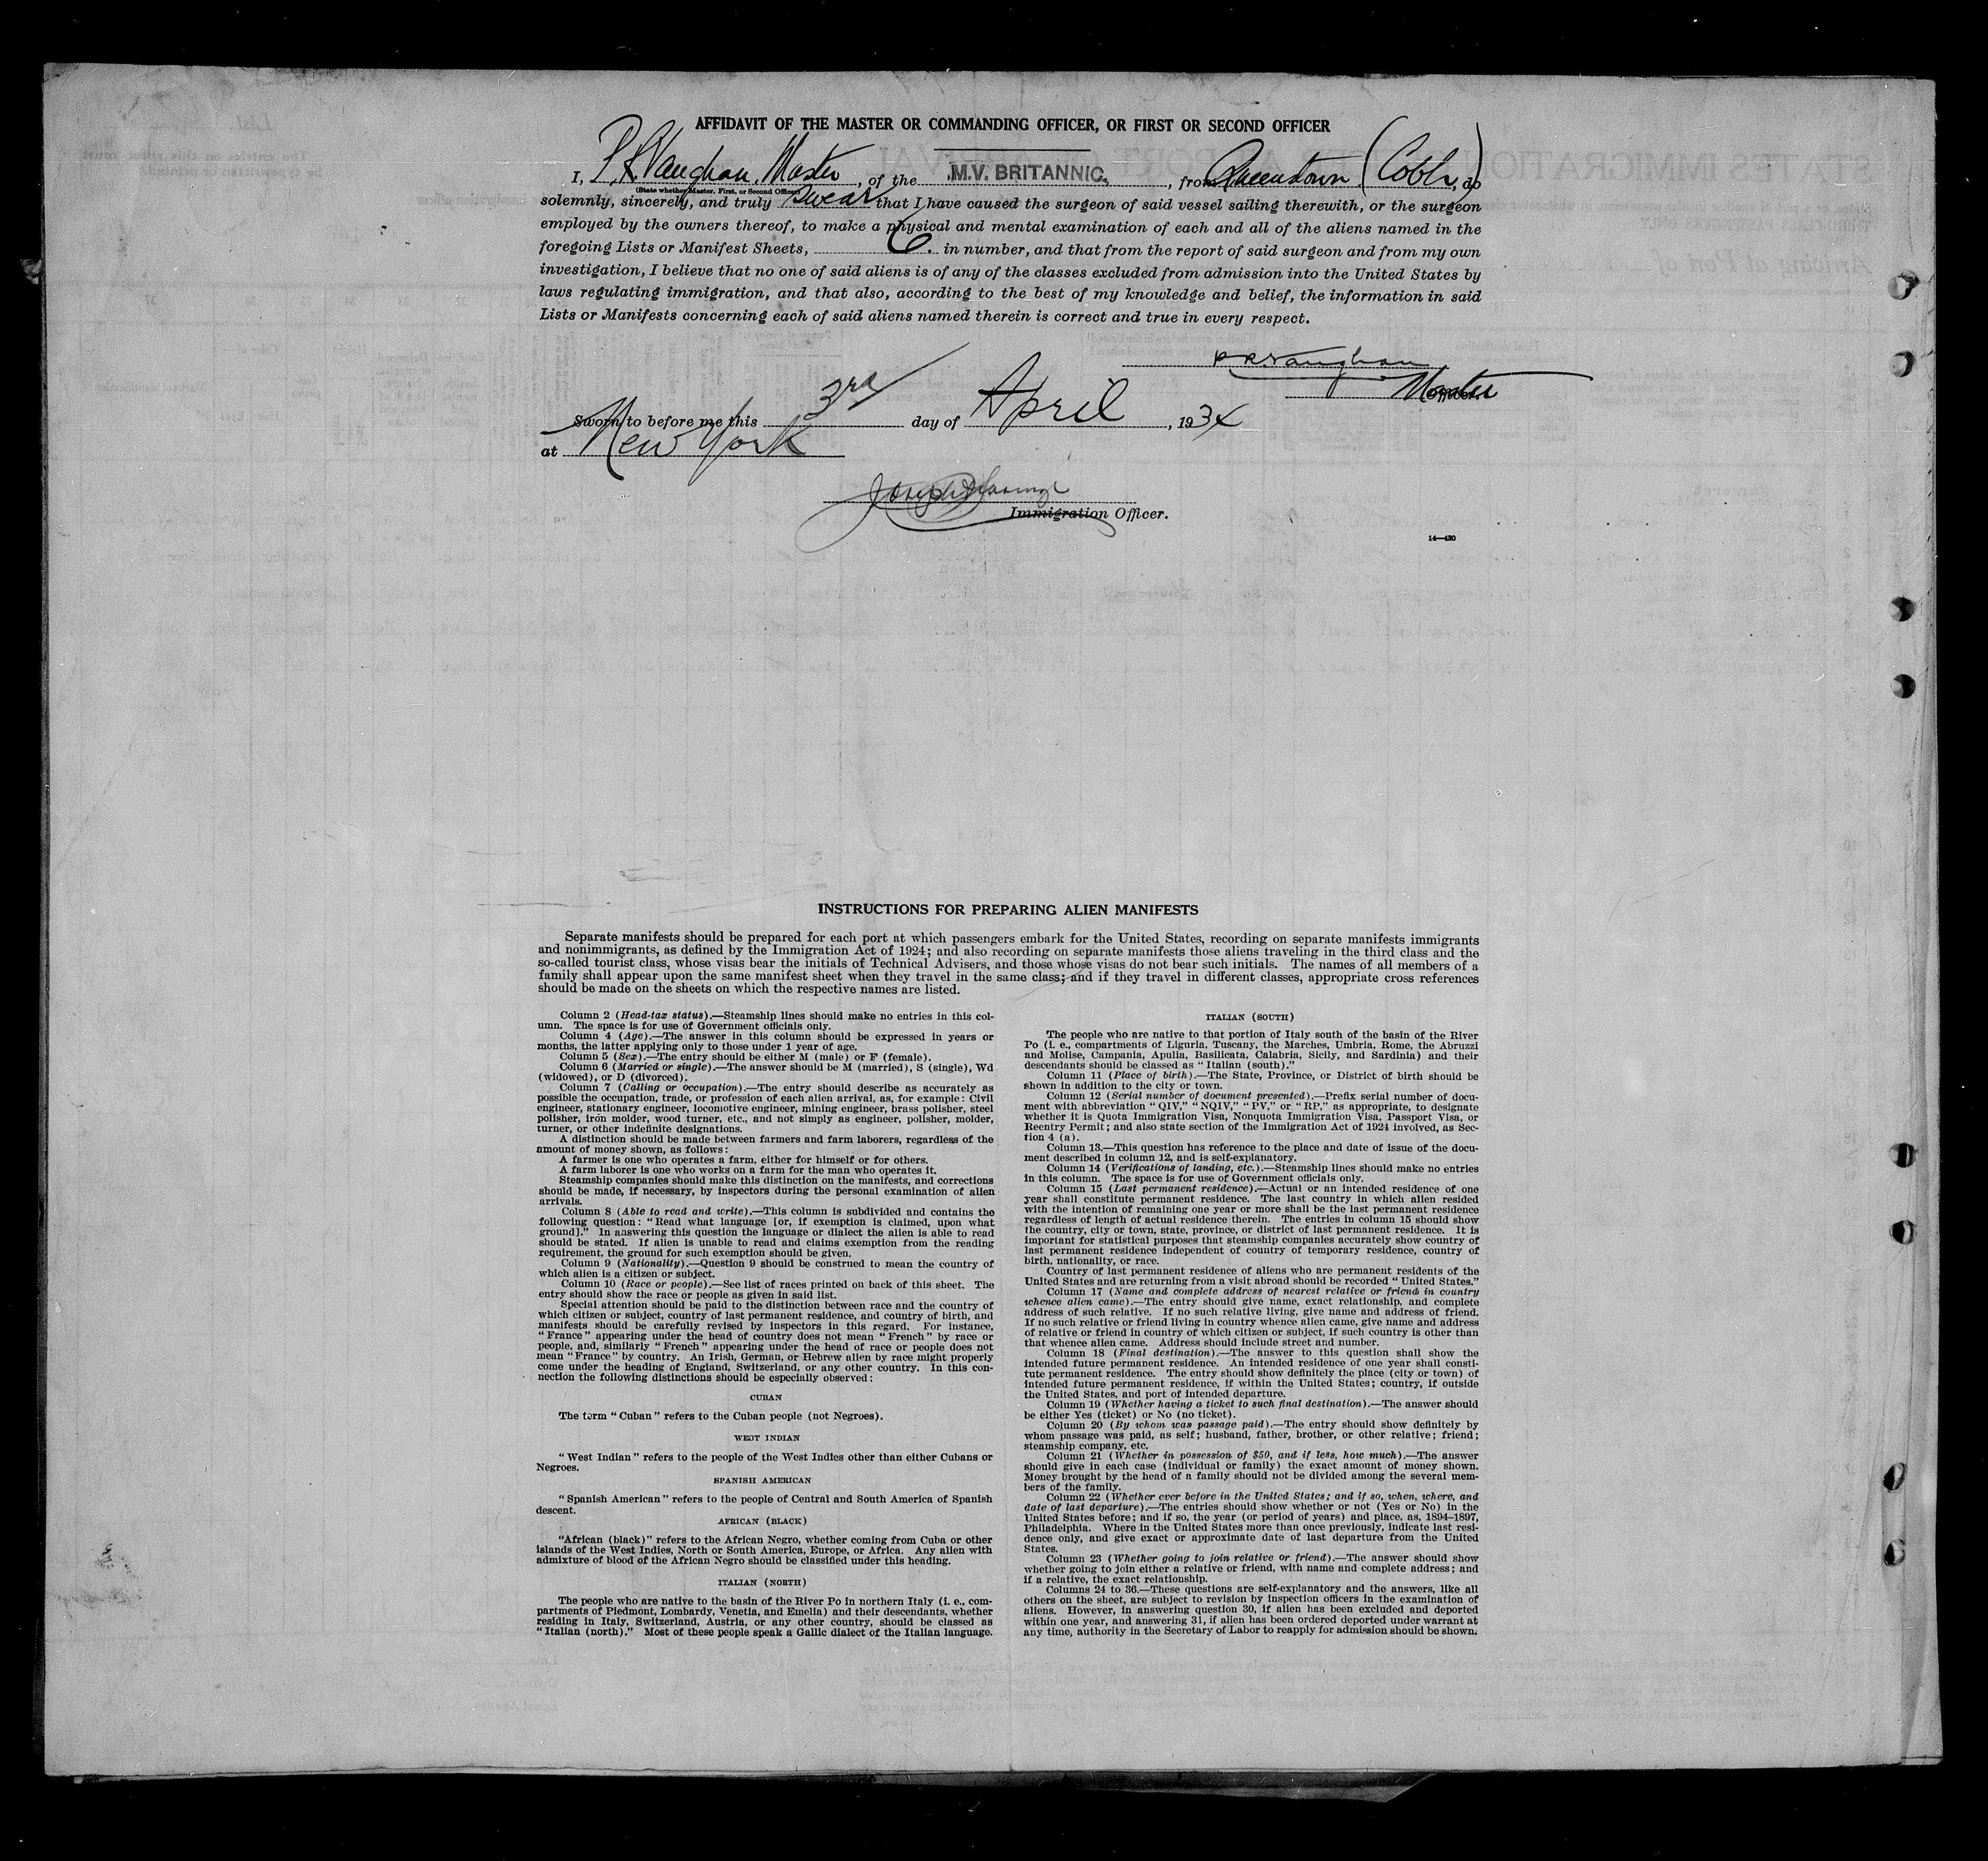 AFFIDAVIT OF THE MASTER OR COMMANDING OFFICER, OR FIRST OR SECOND OFFICER
I, P. R. Vaughan, Master, of the M.V. BRITANNIC, from Queenstown (Cobh), do
(State whether Master, First, or Second Officer)
solemnly, sincerely, and truly swear that I have caused the surgeon of said vessel sailing therewith, or the surgeon
employed by the owners thereof, to make a physical and mental examination of each and all of the aliens named in the
foregoing Lists or Manifest Sheets, 6. in number, and that from the report of said surgeon and from my own
investigation, I believe that no one of said aliens is of any of the classes excluded from admission into the United States by
laws regulating immigration, and that also, according to the best of my knowledge and belief, the information in said
Lists or Manifests concerning each of said aliens named therein is correct and true in every respect.
P R Vaughan
Master
Sworn to before me this 3rd day of April, 1934
at New York
Joseph
Immigration Officer.
14—430
INSTRUCTIONS FOR PREPARING ALIEN MANIFESTS
Separate manifests should be prepared for each port at which passengers embark for the United States, recording on separate manifests immigrants
and nonimmigrants, as defined by the Immigration Act of 1924; and also recording on separate manifests those aliens traveling in the third class and the
so-called tourist class, whose visas bear the initials of Technical Advisers, and those whose visas do not bear such initials. The names of all members of a
family shall appear upon the same manifest sheet when they travel in the same class; and if they travel in different classes, appropriate cross references
should be made on the sheets on which the respective names are listed.
Column 2 (Head-tax status).—Steamship lines should make no entries in this col-
umn. The space is for use of Government officials only.
Column 4 (Age).—The answer in this column should be expressed in years or
months, the latter applying only to those under 1 year of age.
Column 5 (Sex).—The entry should be either M (male) or F (female).
Column 6 (Married or single).—The answer should be M (married), S (single), Wd
(widowed), or D (divorced).
Column 7 (Calling or occupation).—The entry should describe as accurately as
possible the occupation, trade, or profession of each alien arrival, as, for example: Civil
engineer, stationary engineer, locomotive engineer, mining engineer, brass polisher, steel
polisher, iron molder, wood turner, etc., and not simply as engineer, polisher, molder,
turner, or other indefinite designations.
A distinction should be made between farmers and farm laborers, regardless of the
amount of money shown, as follows:
A farmer is one who operates a farm, either for himself or for others.
A farm laborer is one who works on a farm for the man who operates it.
Steamship companies should make this distinction on the manifests, and corrections
should be made, if necessary, by inspectors during the personal examination of alien
arrivals.
Column 8 (Able to read and write).—This column is subdivided and contains the
following question: "Read what language [or, if exemption is claimed, upon what
ground]." In answering this question the language or dialect the alien is able to read
should be stated. If alien is unable to read and claims exemption from the reading
requirement, the ground for such exemption should be given.
Column 9 (Nationality).—Question 9 should be construed to mean the country of
which alien is a citizen or subject.
Column 10 (Race or people).—See list of races printed on back of this sheet. The
entry should show the race or people as given in said list.
Special attention should be paid to the distinction between race and the country of
which citizen or subject, country of last permanent residence, and country of birth, and
manifests should be carefully revised by inspectors in this regard. For instance,
"France" appearing under the head of country does not mean "French" by race or
people, and, similarly "French" appearing under the head of race or people does not
mean "France" by country. An Irish, German, or Hebrew alien by race might properly
come under the heading of England, Switzerland, or any other country. In this con-
nection the following distinctions should be especially observed:
CUBAN
The term "Cuban" refers to the Cuban people (not Negroes).
WEST INDIAN
"West Indian" refers to the people of the West Indies other than either Cubans or
Negroes.
SPANISH AMERICAN
"Spanish American" refers to the people of Central and South America of Spanish
descent.
AFRICAN (BLACK)
"African (black)" refers to the African Negro, whether coming from Cuba or other
islands of the West Indies, North or South America, Europe, or Africa. Any alien with
admixture of blood of the African Negro should be classified under this heading.
ITALIAN (NORTH)
The people who are native to the basin of the River Po in northern Italy (i. e., com-
partments of Piedmont, Lombardy, Venetia, and Emelia) and their descendants, whether
residing in Italy, Switzerland, Austria, or any other country, should be classed as
"Italian (north)." Most of these people speak a Gallic dialect of the Italian language.
ITALIAN (SOUTH)
The people who are native to that portion of Italy south of the basin of the River
Po (i. e., compartments of Liguria, Tuscany, the Marches, Umbria, Rome, the Abruzzi
and Molise, Campania, Apulia, Basilicata, Calabria, Sicily, and Sardinia) and their
descendants should be classed as "Italian (south)."
Column 11 (Place of birth).—The State, Province, or District of birth should be
shown in addition to the city or town.
Column 12 (Serial number of document presented).—Prefix serial number of docu-
ment with abbreviation "QIV," "NQIV," "PV," or "RP," as appropriate, to designate
whether it is Quota Immigration Visa, Nonquota Immigration Visa, Passport Visa, or
Reentry Permit; and also state section of the Immigration Act of 1924 involved, as Sec-
tion 4 (a).
Column 13.—This question has reference to the place and date of issue of the docu-
ment described in column 12, and is self-explanatory.
Column 14 (Verifications of landing, etc.).—Steamship lines should make no entries
in this column. The space is for use of Government officials only.
Column 15 (Last permanent residence).—Actual or an intended residence of one
year shall constitute permanent residence. The last country in which alien resided
with the intention of remaining one year or more shall be the last permanent residence
regardless of length of actual residence therein. The entries in column 15 should show
the country, city or town, state, province, or district of last permanent residence. It is
important for statistical purposes that steamship companies accurately show country of
last permanent residence independent of country of temporary residence, country of
birth, nationality, or race.
Country of last permanent residence of aliens who are permanent residents of the
United States and are returning from a visit abroad should be recorded "United States."
Column 17 (Name and complete address of nearest relative or friend in country
whence alien came).—The entry should give name, exact relationship, and complete
address of such relative. If no such relative living, give name and address of friend.
If no such relative or friend living in country whence alien came, give name and address
of relative or friend in country of which citizen or subject, if such country is other than
that whence alien came. Address should include street and number.
Column 18 (Final destination).—The answer to this question shall show the
intended future permanent residence. An intended residence of one year shall consti-
tute permanent residence. The entry should show definitely the place (city or town) of
intended future permanent residence, if within the United States; country, if outside
the United States, and port of intended departure.
Column 19 (Whether having a ticket to such final destination).—The answer should
be either Yes (ticket) or No (no ticket).
Column 20 (By whom was passage paid).—The entry should show definitely by
whom passage was paid, as self; husband, father, brother, or other relative; friend;
steamship company, etc.
Column 21 (Whether in possession of $50, and if less, how much).—The answer
should give in each case (individual or family) the exact amount of money shown.
Money brought by the head of a family should not be divided among the several mem-
bers of the family.
Column 22 (Whether ever before in the United States; and if so, when, where, and
date of last departure).—The entries should show whether or not (Yes or No) in the
United States before; and if so, the year (or period of years) and place, as, 1894–1897,
Philadelphia. Where in the United States more than once previously, indicate last resi-
dence only, and give exact or approximate date of last departure from the United
States.
Column 23 (Whether going to join relative or friend).—The answer should show
whether going to join either a relative or friend, with name and complete address; and
if a relative, the exact relationship.
Columns 24 to 36.—These questions are self-explanatory and the answers, like all
others on the sheet, are subject to revision by inspection officers in the examination of
aliens. However, in answering question 30, if alien has been excluded and deported
within one year, and answering 31, if alien has been ordered deported under warrant at
any time, authority in the Secretary of Labor to reapply for admission should be shown.